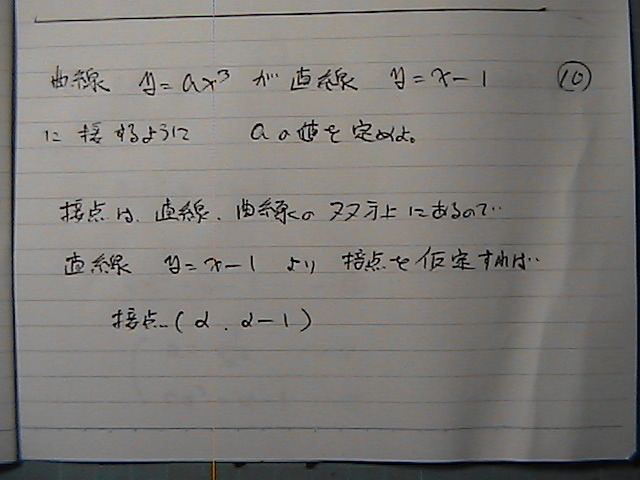 曲線 y=ax³ が 直線 y=x-1 ⑩
に接するように aの値を定めよ。
接点は、直線、曲線の双方上にあるので
直線 y=x-1 より 接点を仮定すれば
接点(α、α-1)